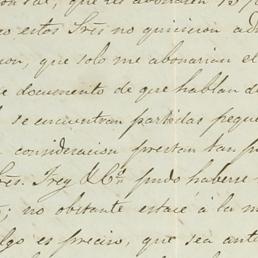 que es abonaren
estos Sres no quisieron ad
que solo me abonarian el
documento de que hablan d
se encuentran partidas peque
consideracion prestan tan p
Sres. Frey & Cª. pudo haberse
; no obstante estaré á la m
algo es preciso, que sea ante